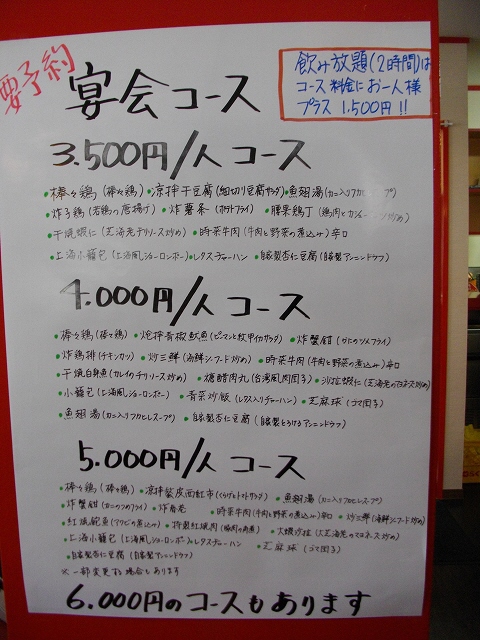 要予約
宴会コース
飲み放題(2時間)は
コース料金にお一人様
プラス 1,500円!!
3.500円/人 コース
・棒々鶏(棒々鶏) ・凉拌干豆腐(細切り豆腐サラダ) ・魚翅湯(カニ入りフカヒレスープ)
・炸子鶏(若鶏の唐揚げ) ・炸薯条(ポテトフライ) ・腰果鶏丁(鶏肉とカシューナッツ炒め)
・干焼蝦仁(芝海老チリソース炒め) ・時菜牛肉(牛肉と野菜の煮込み)辛口
・上海小籠包(上海風ショーロンポー) ・レタスチャーハン ・自家製杏仁豆腐(自家製アンニンドウフ)
4.000円/人 コース
・棒々鶏(棒々鶏) ・炝拌青椒魷魚(ピーマンと紋甲イカサラダ) ・炸蟹鉗(かにのツメフライ)
・炸鶏排(チキンカツ) ・炒三鮮(海鮮シーフード炒め) ・時菜牛肉(牛肉と野菜の煮込み)辛口
・干焼白身魚(カレイのチリソース炒め) ・糖醋肉丸(台湾風肉団子) ・沙拉蝦仁(芝海老のマヨネーズ炒め)
・小籠包(上海風ショーロンポー) ・青菜炒飯(レタス入りチャーハン) ・芝麻球(ゴマ団子)
・魚翅湯(カニ入りフカヒレスープ) ・自家製杏仁豆腐(自家製とろけるアンニンドウフ)
5.000円/人 コース
・棒々鶏(棒々鶏) ・凉拌蜇皮西紅市(くらげとトマトサラダ) ・魚翅湯(カニ入りフカヒレスープ)
・炸蟹鉗(カニのツメフライ) ・炸春巻 ・時菜牛肉(牛肉と野菜の煮込み)辛口 ・炒三鮮(海鮮シーフード炒め)
・紅焼鮑魚(アワビの煮込み) ・特製紅焼肉(豚肉の角煮) ・大蝦沙拉(大芝海老のマヨネーズ炒め)
・上海小籠包(上海風ショーロンポー) ・レタスチャーハン ・芝麻球(ゴマ団子)
・自家製杏仁豆腐(自家製アンニンドウフ)
※一部変更する場合もあります
6.000円のコースもあります